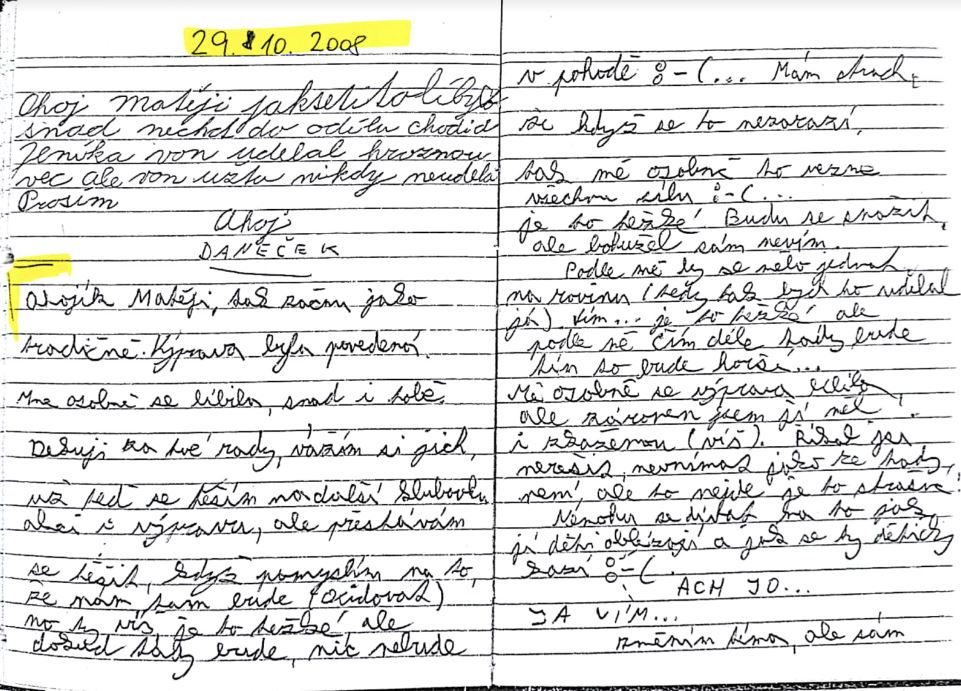 29. 10. 2008
Ahoj matěji jaksetitolíbylo
snad nechtěl do odílu chodid
Jeníka von udelal hroznou
vec ale von užtu nikdy neudelá
Prosím
Ahoj
DANEČEK
Ahojík Matěji, tak začnu jako
tradičně. Výprava byla povedená.
Mne osobně se líbila, snad i tobě.
Dekuji za tvé rady, vážím si jich,
už teď se těším na další Slubovku
aleć i výpravu, ale přestávám
se těšit, když pomyslím na to,
že nám tam bude (ocidovat)
no ty víš je to težké ale
dokud tady bude, nic nebude
v pohodě :-(... Mám strach,
že když se to nezarazí,
tak mé osobně to vezme
všechnu sílu :-(...
je to težké! Budu se snažit,
ale bohužel sám nevím.
Podle mě by se mělo jednat
na rovinu (tedy tak bych to udělal
já) vím... je to težké ale
podle mě čím déle tady bude
tím to bude horší...
Mě osobně se výprava líbila,
ale zároven jsem jí měl
i zkaženou (víš). Říkat jen
neřešit, nevnímat jako že tady
není, ale to nejde je to strašné!
Nemohu se dívat na to jak
jí děti oblézají a jak se ty dětičky
kazí :-(.
ACH JO...
JA VÍM...
změním téma, ale sám